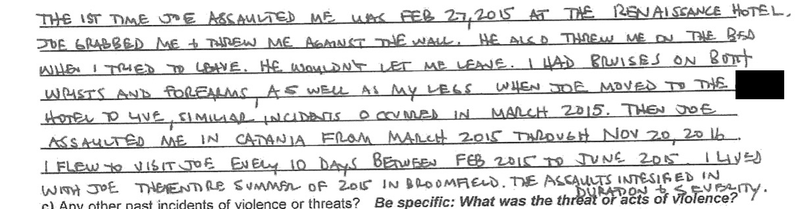 THE 1ST TIME JOE ASSAULTED ME WAS FEB 27, 2015 AT THE RENAISSANCE HOTEL.
JOE GRABBED ME & THREW ME AGAINST THE WALL. HE ALSO THREW ME ON THE BED
WHEN I TRIED TO LEAVE. HE WOULDN'T LET ME LEAVE. I HAD BRUISES ON BOTH
WRISTS AND FOREARMS, AS WELL AS MY LEGS WHEN JOE MOVED TO THE
HOTEL TO LIVE, SIMILIAR INCIDENTS OCCURED IN MARCH 2015. THEN JOE
ASSAULTED ME IN CATANIA FROM MARCH 2015 THROUGH NOV 20, 2016
I FLEW TO VISIT JOE EVERY 10 DAYS BETWEEN FEB 2015 TO JUNE 2015. I LIVED
WITH JOE THE ENTIRE SUMMER OF 2015 IN BROOMFIELD. THE ASSAULTS INTESIFIED IN
DURATION & SEVERITY.
c) Any other past incidents of violence or threats? Be specific: What was the threat or acts of violence?